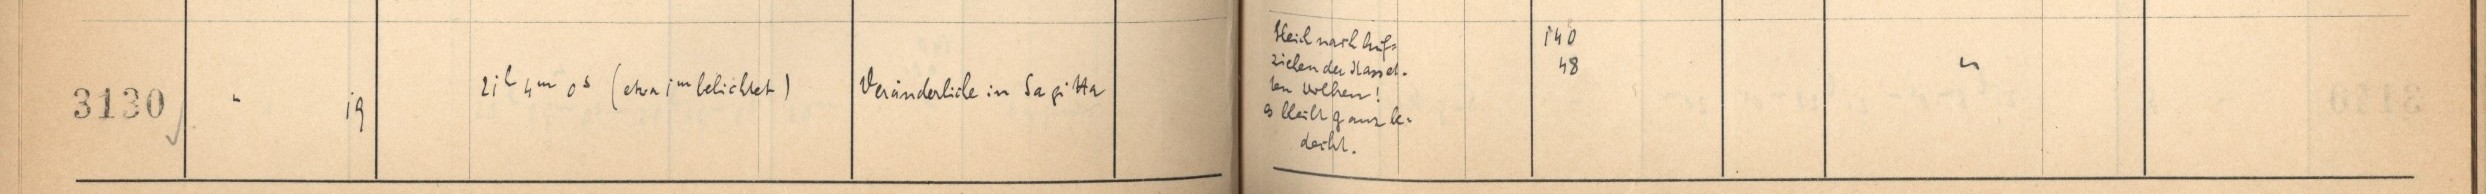 3130 " 19 21h 4m 0s (etwa 1m belichtet) Veränderliche in Sagitta
Gleich nach Auf=
ziehen der Kasset-
ten Wolken!
es bleibt ganz be-
deckt.
140
48
"